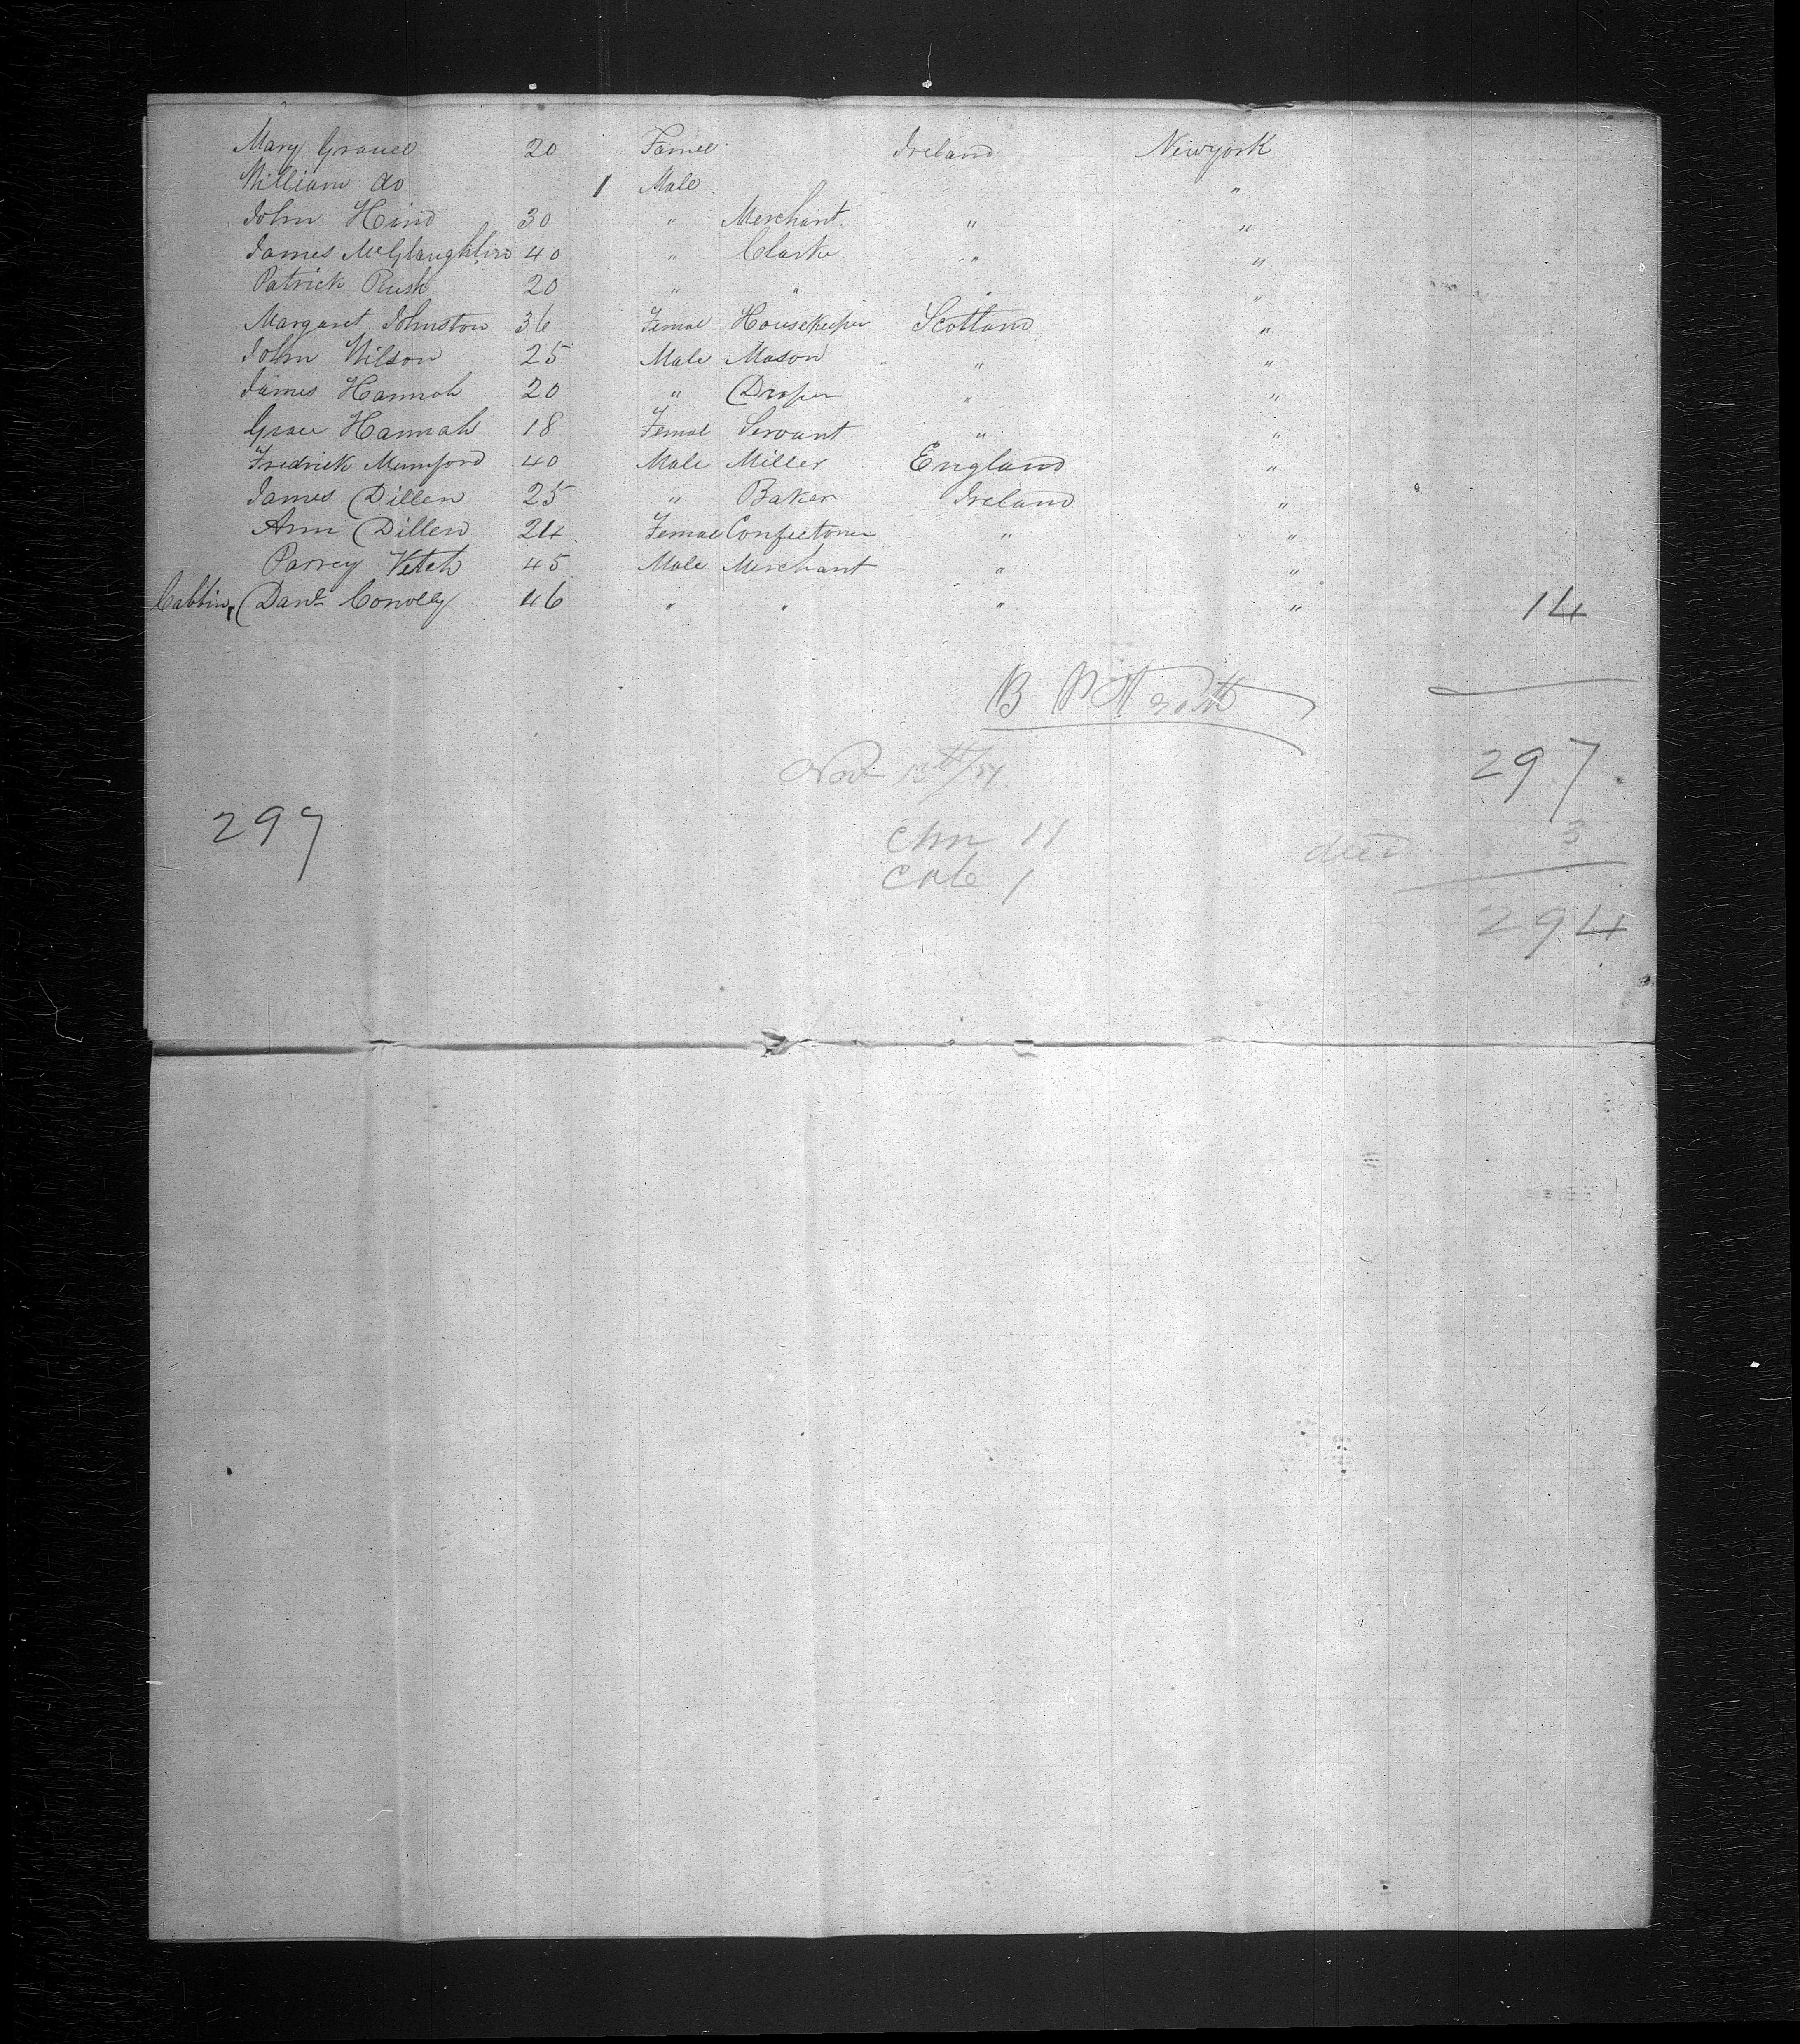 Mary Grauel 20 Famel Ireland Newyork
William do 1 Male "
John Hind 30 " Merchant " "
James McGlaughlin 40 " Clarke " "
Patrick Rush 20 " " " "
Margaret Johnston 36 Femal Housekeeper Scotland "
John Wilson 25 Male Mason " "
James Hannah 20 " Draper " "
Grace Hannah 18 Femal Servant " "
Fredrick Mumford 40 Male Miller England "
James Dillen 25 " Baker Ireland "
Ann Dillen 24 Femal Confectoner " "
Parrey Vetch 45 Male Merchant " "
Cabbin Danl Conolly 46 " " " " 14
B
Nov 13th/54 297
297
chn 11 died 3
Cab 1
294